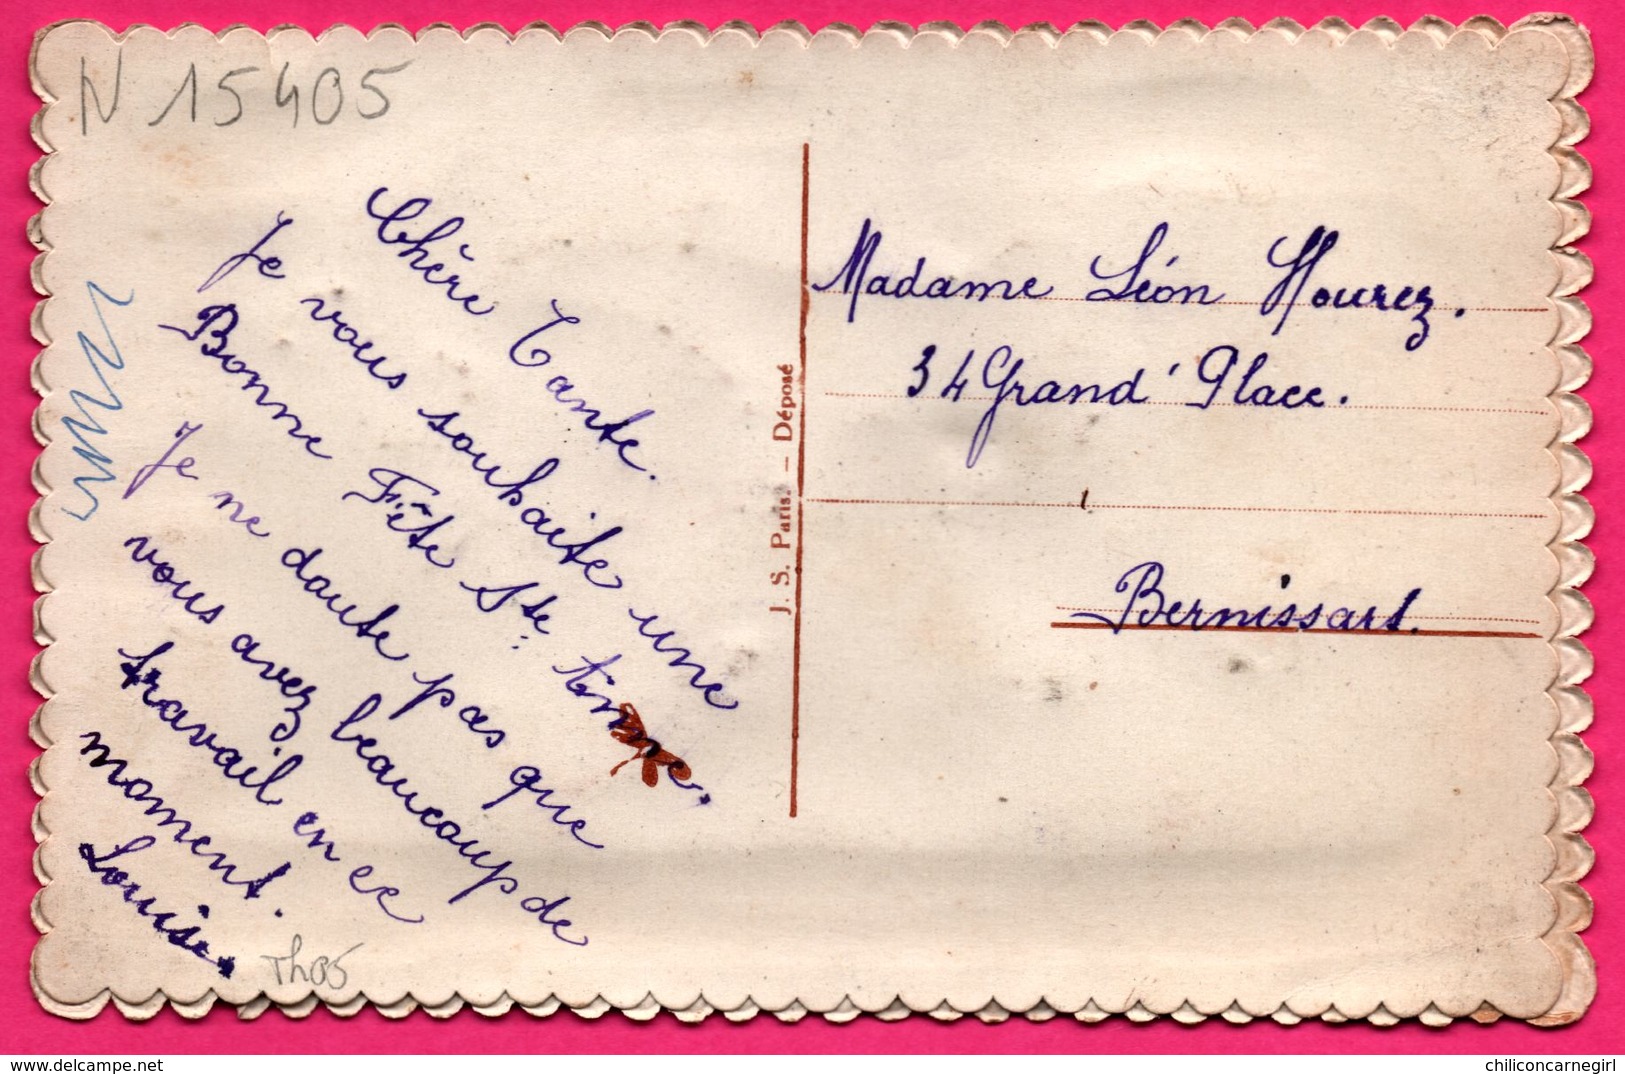 N 15405
Chère Tante.
Je vous souhaite une
Bonne Fête Ste Anne.
Je ne doute pas que
vous avez beaucoup de
travail en ce
moment.
Louise.
Th05
J. S. Paris. – Déposé
Madame Léon Hourez.
34 Grand' Place.
Bernissart.
www.delcampe.net
chiliconcarnegirl